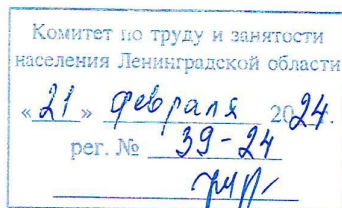 Комитет по труду и занятости
населения Ленинградской области
«21» февраля 2024.
рег. № 39-24